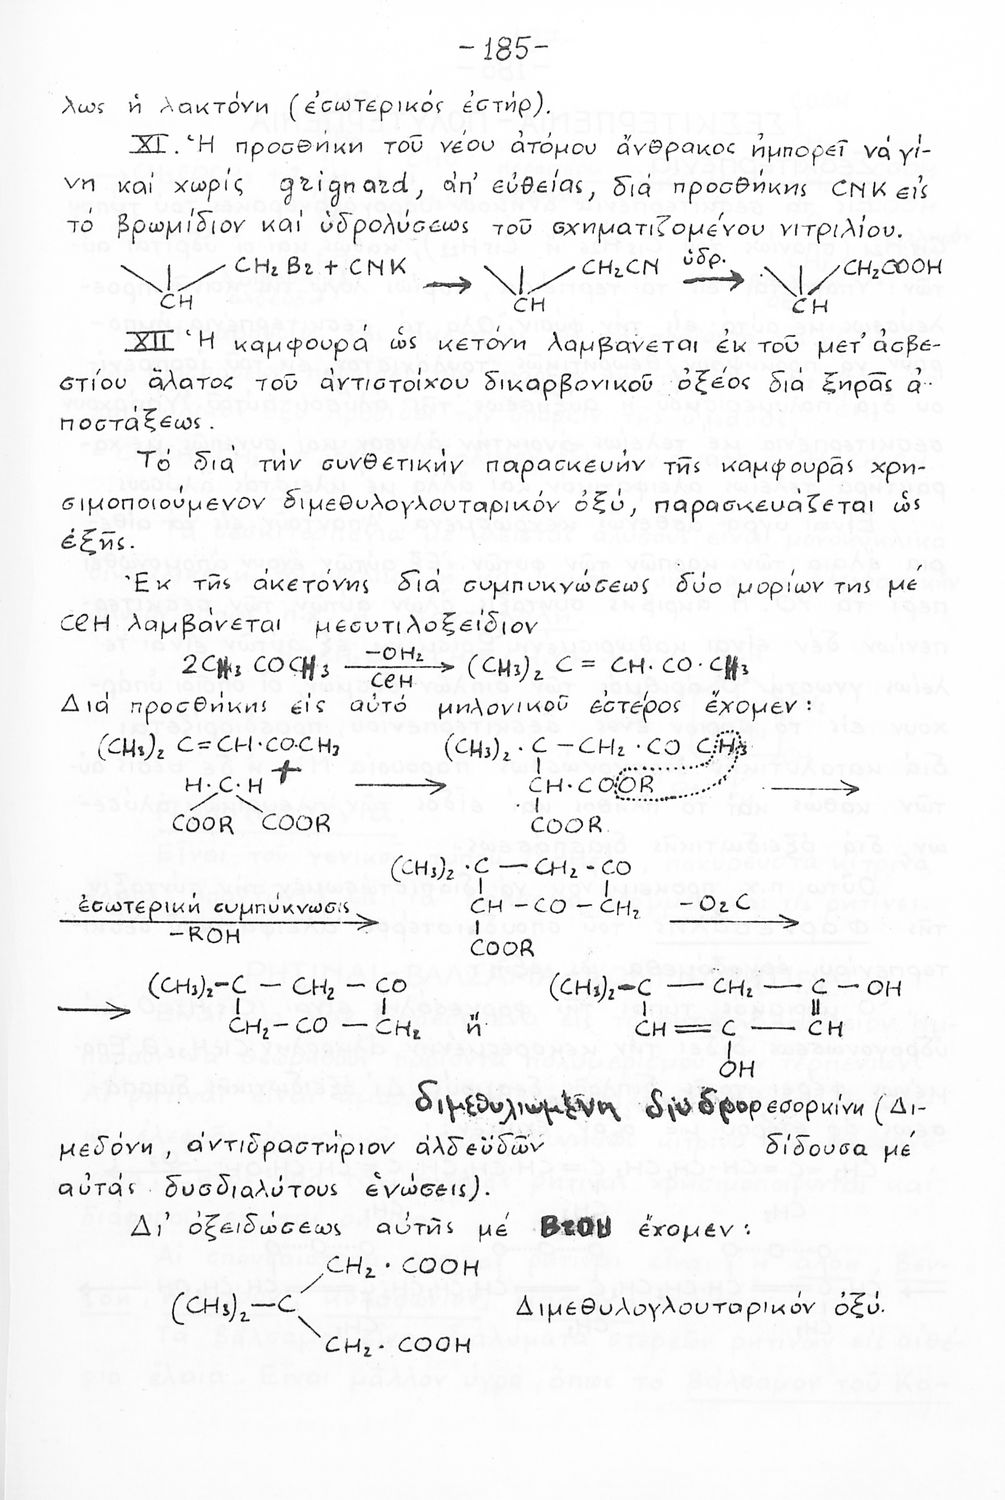 -185-
λως ἡ λακτόνη (ἐσωτερικός ἐστήρ).
XI. Ἡ προσθήκη τοῦ νέου ἀτόμου ἄνθρακος ἠμπορεῖ νά γί-
νη καί χωρίς grignard, ἀπ' εὐθείας, διά προσθήκης CNK εἰς
τό βρωμίδιον καί ὑδρολύσεως τοῦ σχηματιζομένου νιτριλίου.
CH₂Br + CNK → CH₂CN ὑδρ. → CH₂COOH
CH CH CH
XII Ἡ καμφουρά ὡς κετόνη λαμβάνεται ἐκ τοῦ μετ' ἀσβε-
στίου ἅλατος τοῦ ἀντιστοίχου δικαρβονικοῦ ὀξέος διά ξηρᾶς ἀ-
ποστάξεως.
Τό διά τήν συνθετικήν παρασκευήν τῆς καμφουρᾶς χρη-
σιμοποιούμενον διμεθυλογλουταρικόν ὀξύ, παρασκευάζεται ὡς
ἑξῆς.
Ἐκ τῆς ἀκετόνης διά συμπυκνώσεως δύο μορίων της μέ
CℓH λαμβάνεται μεσυτιλοξείδιον
2CH₃ COCH₃ —OH₂ → (CH₃)₂ C = CH·CO·CH₃
CℓH
Διά προσθήκης εἰς αὐτό μηλονικοῦ ἐστέρος ἔχομεν:
(CH₃)₂ C=CH·CO·CH₃ (CH₃)₂·C —CH₂·CO CH₃
H·C·H + → CH·COOR →
COOR COOR COOR
(CH₃)₂·C — CH₂-CO
ἐσωτερική συμπύκνωσις → CH — CO — CH₂ —O₂C →
—ROH COOR
(CH₃)₂-C — CH₂ — CO (CH₃)₂-C — CH₂ — C — OH
→ CH₂-CO — CH₂ ἤ CH = C — CH
OH
διμεθυλιωμένη διυδρορεσορκίνη (Δι-
μεδόνη, ἀντιδραστήριον ἀλδεϋδῶν δίδουσα μέ
αὐτάς δυσδιαλύτους ἑνώσεις).
Δι' ὀξειδώσεως αὐτῆς μέ BrOH ἔχομεν:
CH₂·COOH
(CH₃)₂—C Διμεθυλογλουταρικόν ὀξύ.
CH₂·COOH